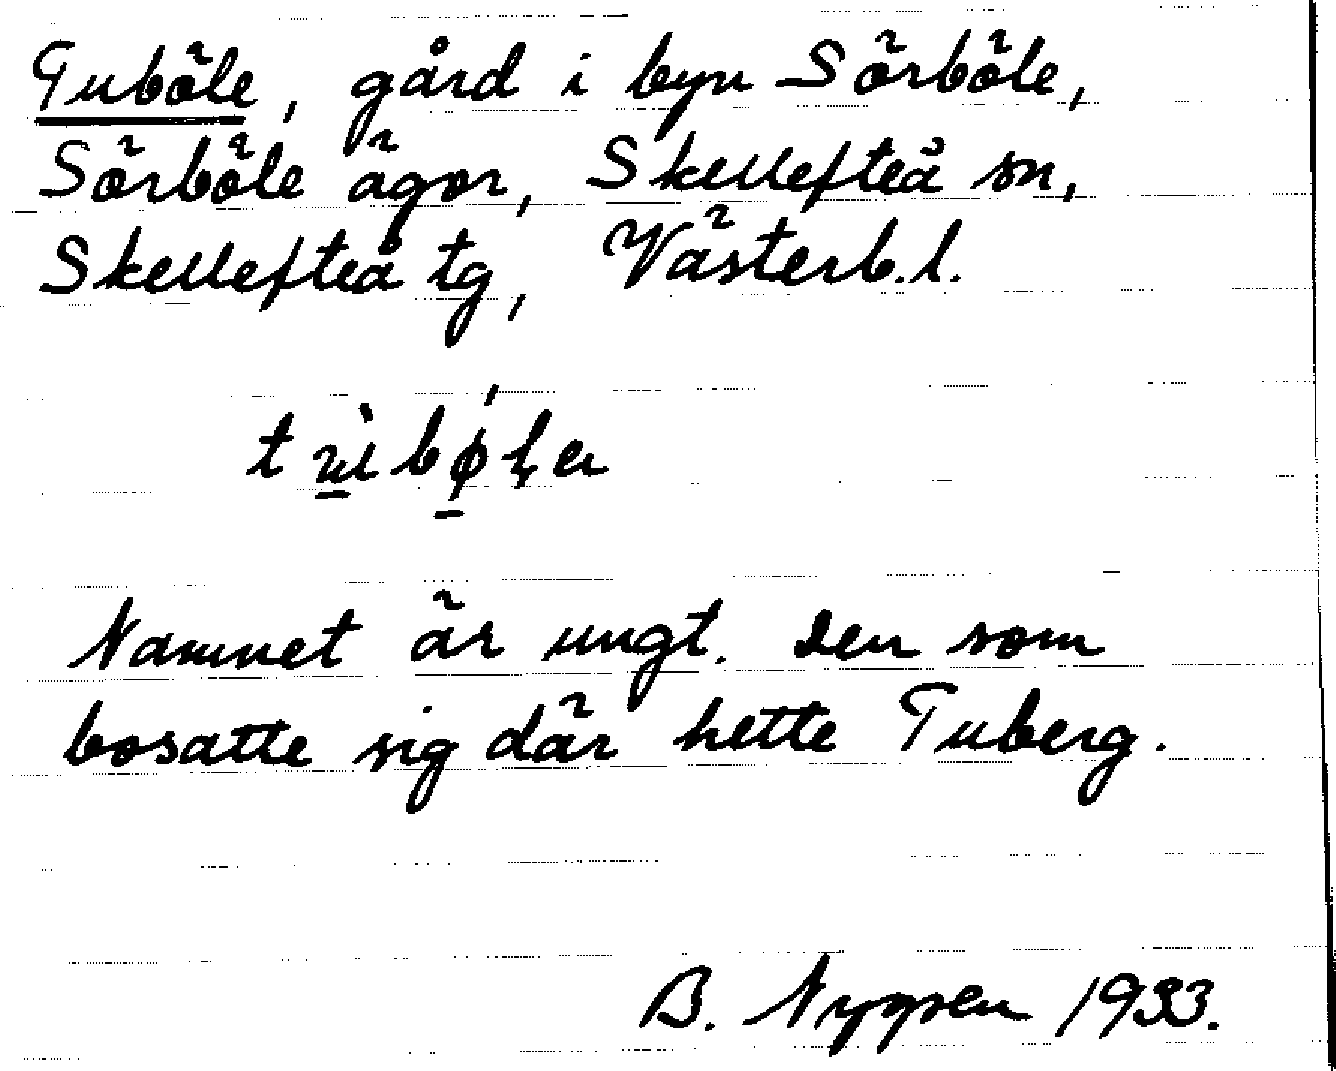 Tuböle, gård i byn Sörböle,
Sörböle ägor, Skellefteå sn,
Skellefteå tg, Västerb.l.
Namnet är ungt. Den som
bosatte sig där hette Tuberg.
B. Nygren 1933.